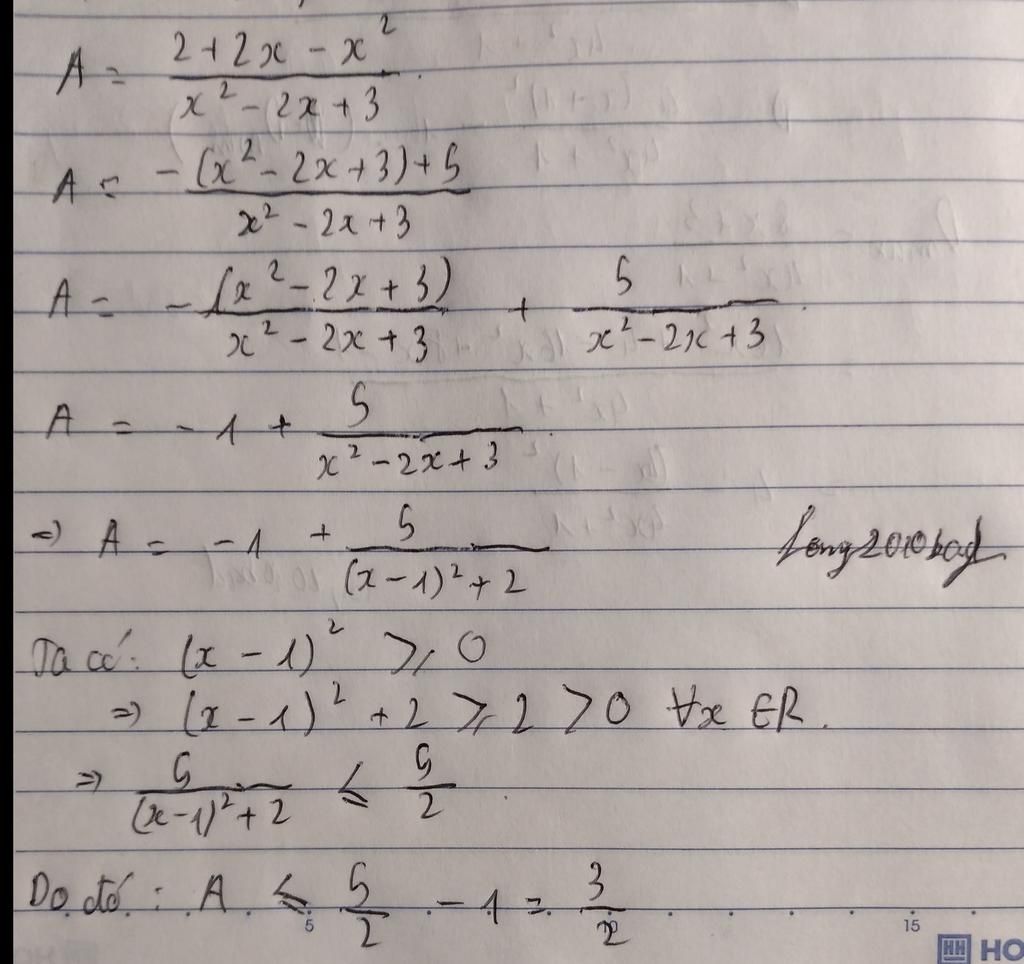 A = \frac{2 + 2x - x^2}{x^2 - 2x + 3}
A = \frac{-(x^2 - 2x + 3) + 5}{x^2 - 2x + 3}
A = -\frac{(x^2 - 2x + 3)}{x^2 - 2x + 3} + \frac{5}{x^2 - 2x + 3}
A = -1 + \frac{5}{x^2 - 2x + 3}
⇒ A = -1 + \frac{5}{(x - 1)^2 + 2} Long2010bad
Ta có: (x - 1)^2 ⩾ 0
⇒ (x - 1)^2 + 2 ⩾ 2 > 0 ∀x ∈ R.
⇒ \frac{5}{(x - 1)^2 + 2} ⩽ \frac{5}{2}
Do đó: A ⩽ \frac{5}{2} - 1 = \frac{3}{2}
5 15
HH HO